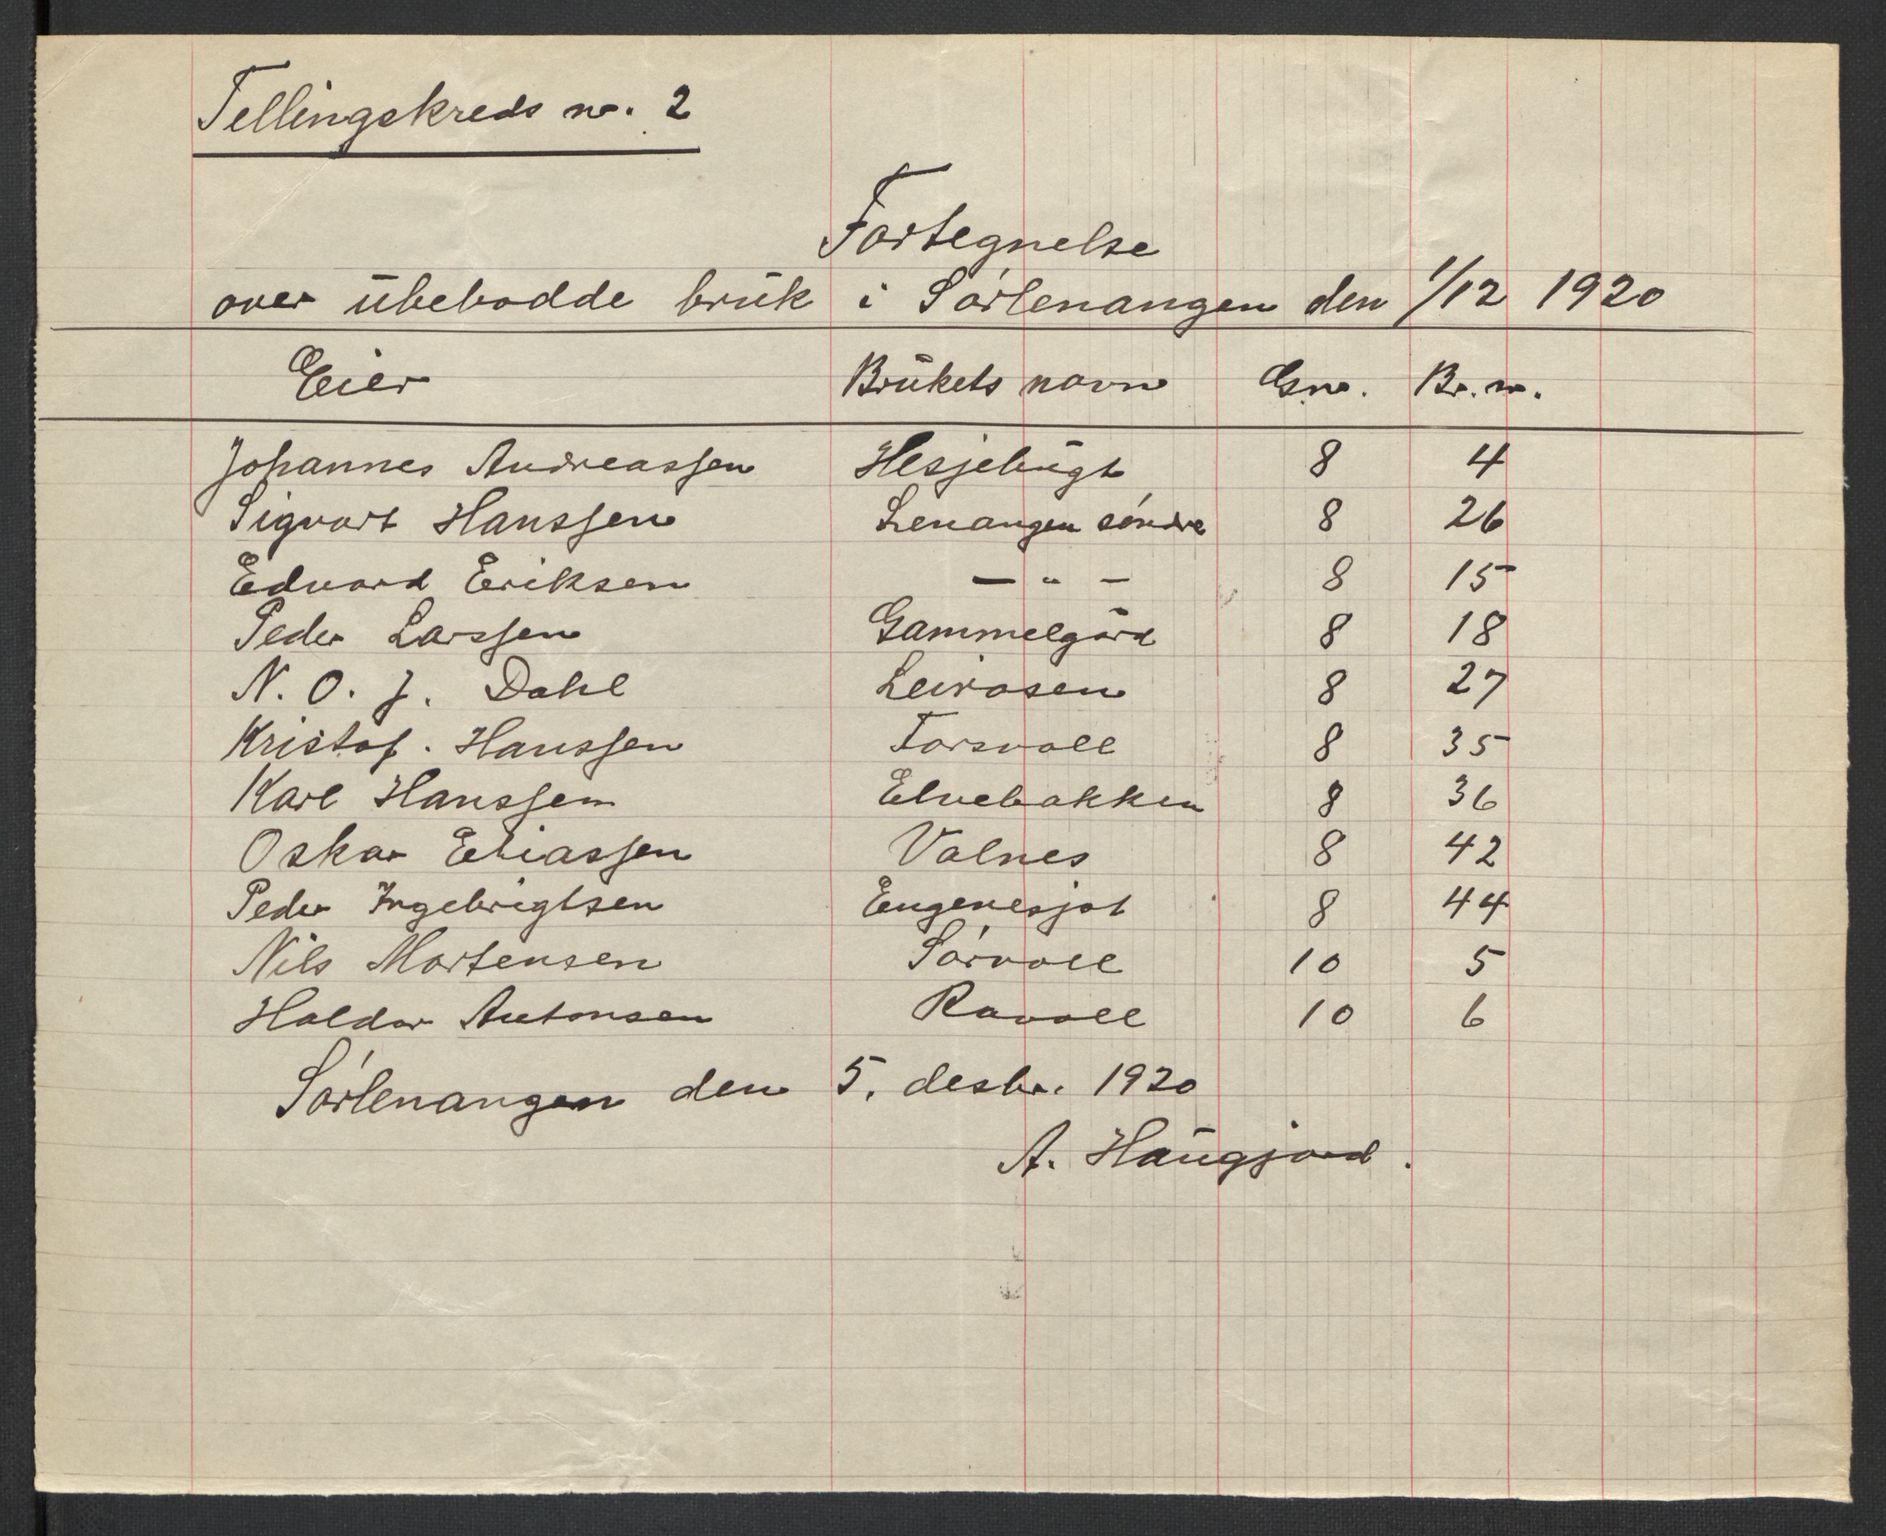 Tellingskreds nr. 2
Fortegnelse
over ubebodde bruk i Sørlenangen den 1/12 1920
Eier Brukets navn Gnr. Br.nr.
Johannes Andreassen Hesjebugt 8 4
Sigvart Hanssen Lenangen söndre 8 26
Edvard Eriksen — " — 8 15
Peder Larssen Gammelgård 8 18
N. O. J. Dahl Leirosen 8 27
Kristof. Hanssen Forsvoll 8 35
Karl Hanssen Elvebakken 8 36
Oskar Eliassen Valnes 8 42
Peder Ingebrigtsen 8 44
Nils Mortensen Sörvoll 10 5
Haldor Antonsen Ravoll 10 6
Sørlenangen den 5. desbr. 1920
A. Haugjord.